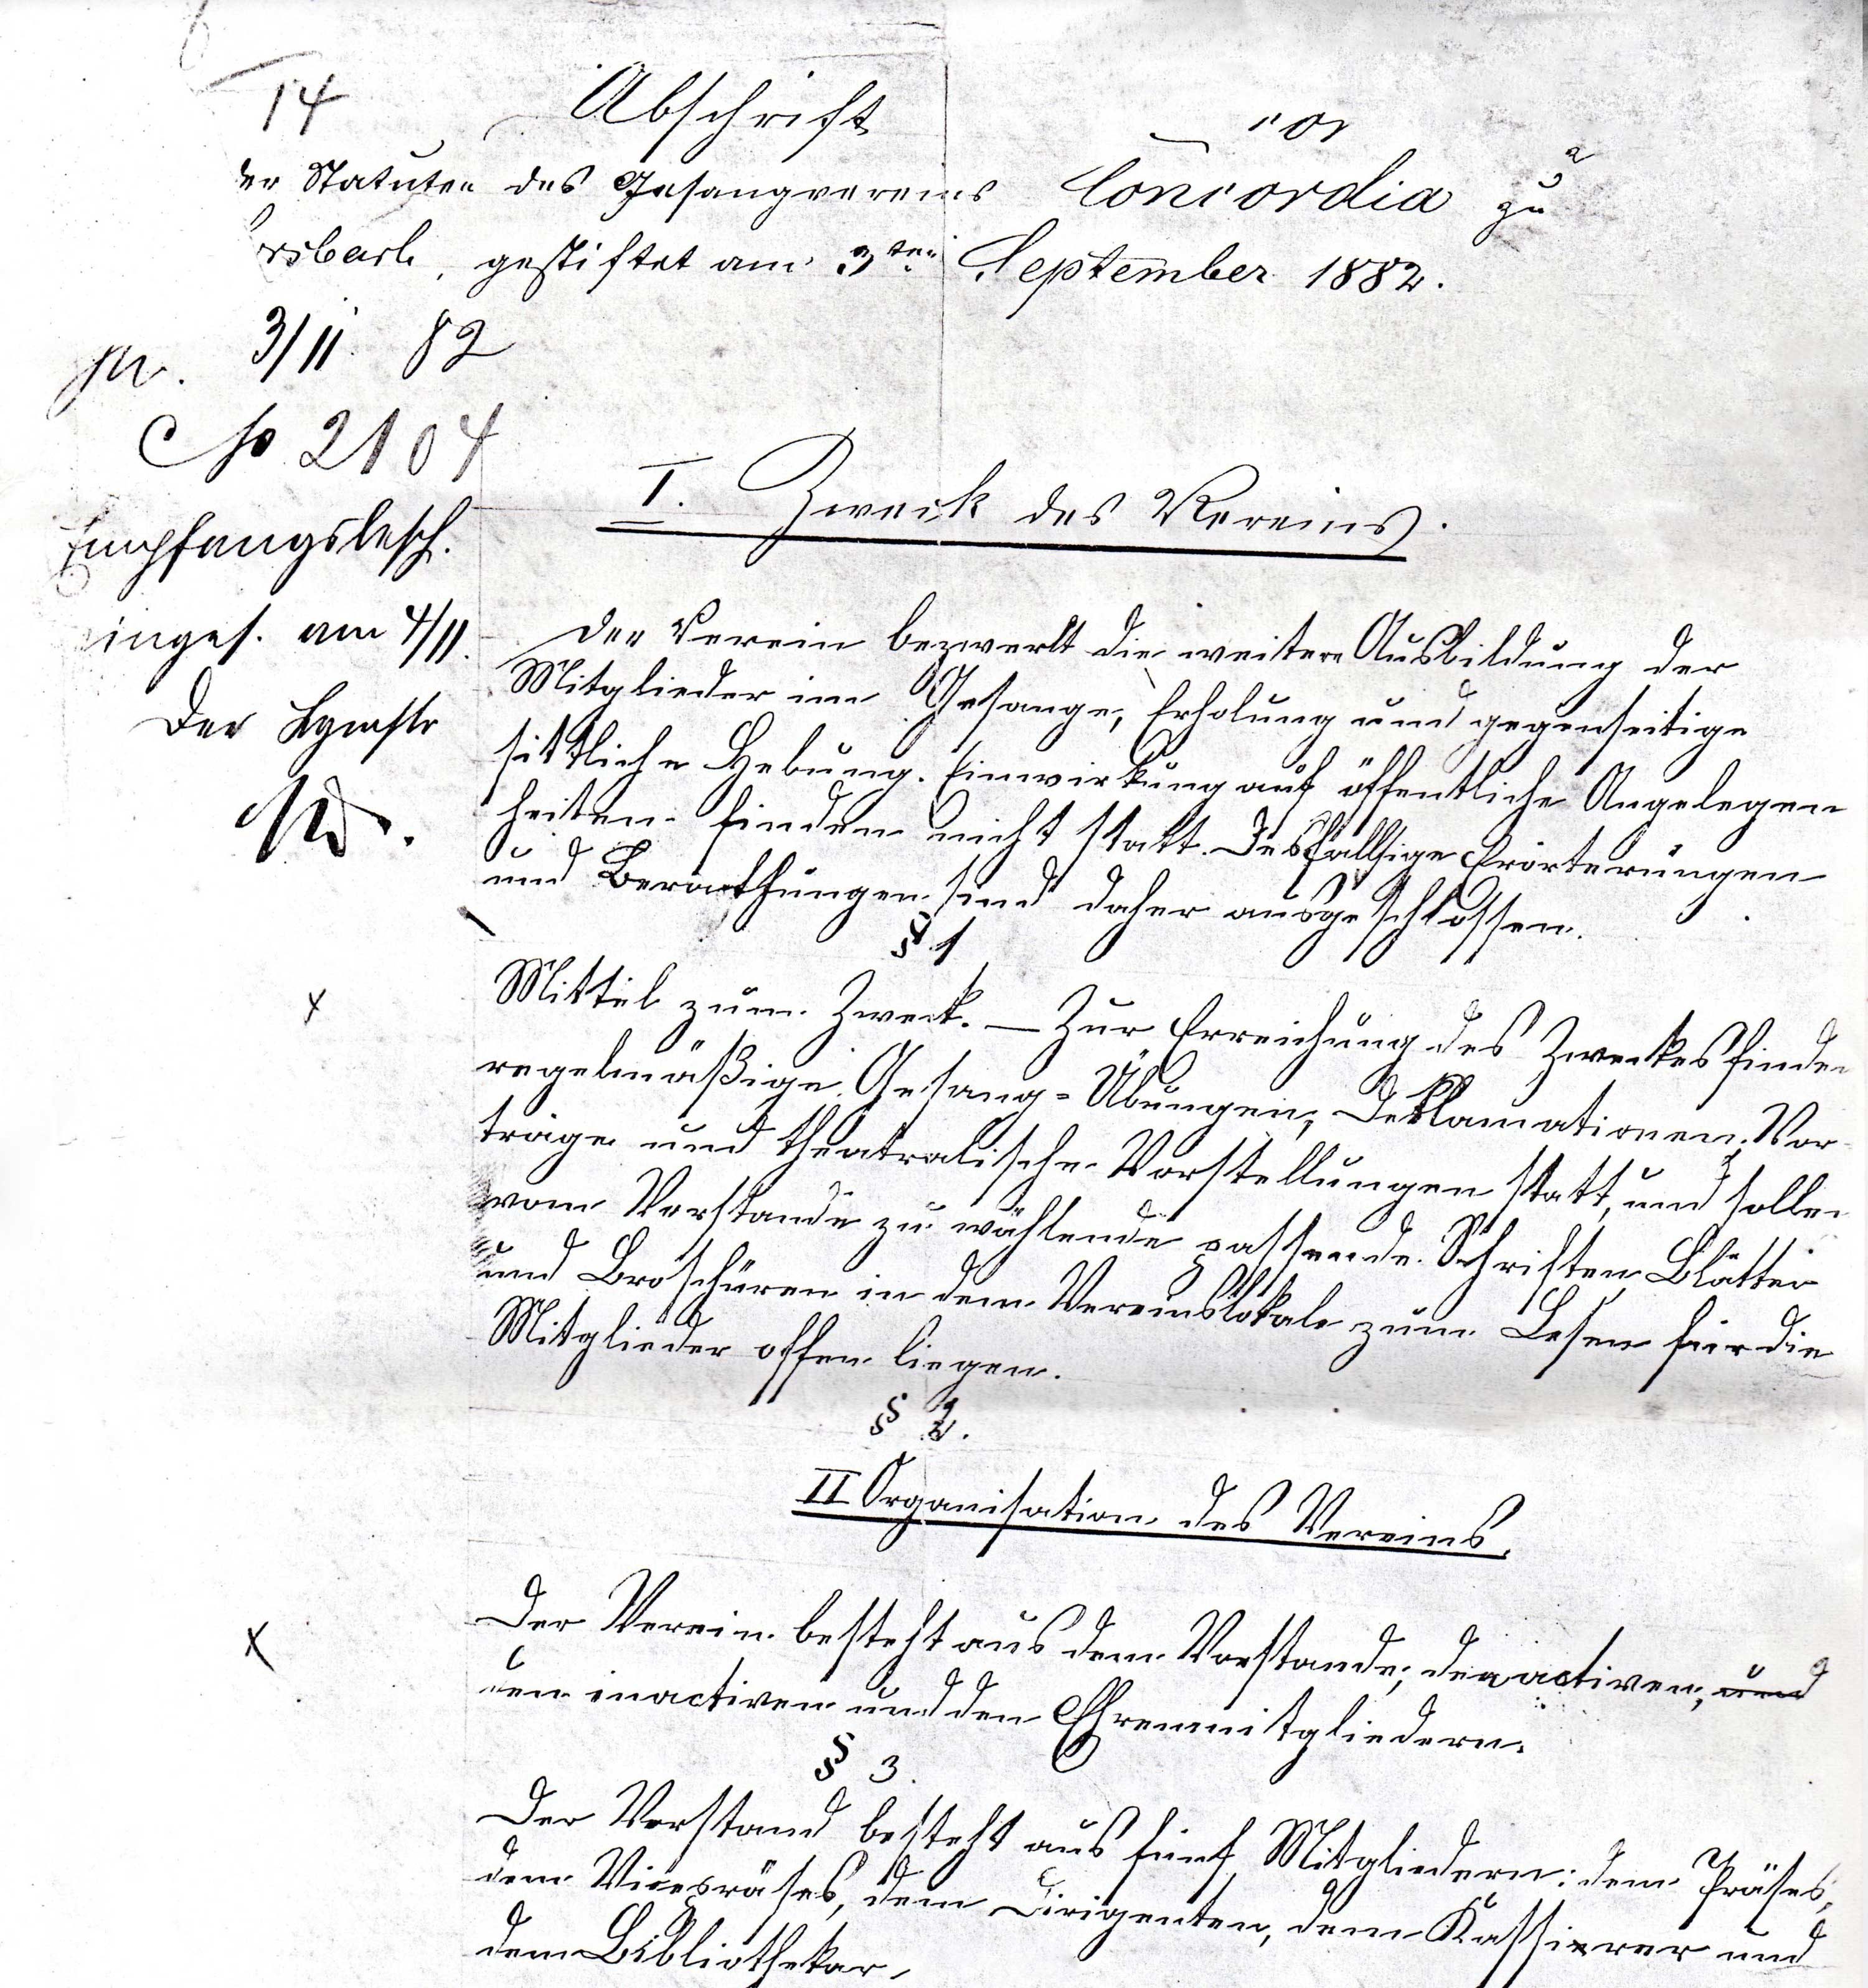 14
Abschrift
der Statuten des Gesangvereins Concordia zu
gestiftet am 3ten September 1882.
3/11. 82
2104
Empfangsbesch.
einges. am 4/11.
Der Bgmstr
I. Zweck des Vereins.
Der Verein bezweckt die weitere Ausbildung der
Mitglieder im Gesange, Erholung und gegenseitige
sittliche Hebung. Einwirkung auf öffentliche Angelegen
heiten finden nicht statt. Desfallsige Erörterungen
und Berathungen sind daher ausgeschlossen.
§ 1
x
Mittel zum Zweck. — Zur Erreichung des Zweckes finden
regelmäßige Gesang-Übungen, Deklamationen, Vor-
träge und theatralische Vorstellungen statt, und sollen
vom Vorstande zu wählende passende Schriften, Blätter
und Broschüren in dem Vereinslokale zum Lesen für die
Mitglieder offen liegen.
§ 2.
II Organisation des Vereins.
x
Der Verein besteht aus dem Vorstande, den activen, und
den inactiven und den Ehrenmitgliedern.
§ 3.
Der Vorstand besteht aus fünf Mitgliedern: dem Präses,
dem Vicepräses, dem Dirigenten, dem Kassierer und
dem Bibliothekar.